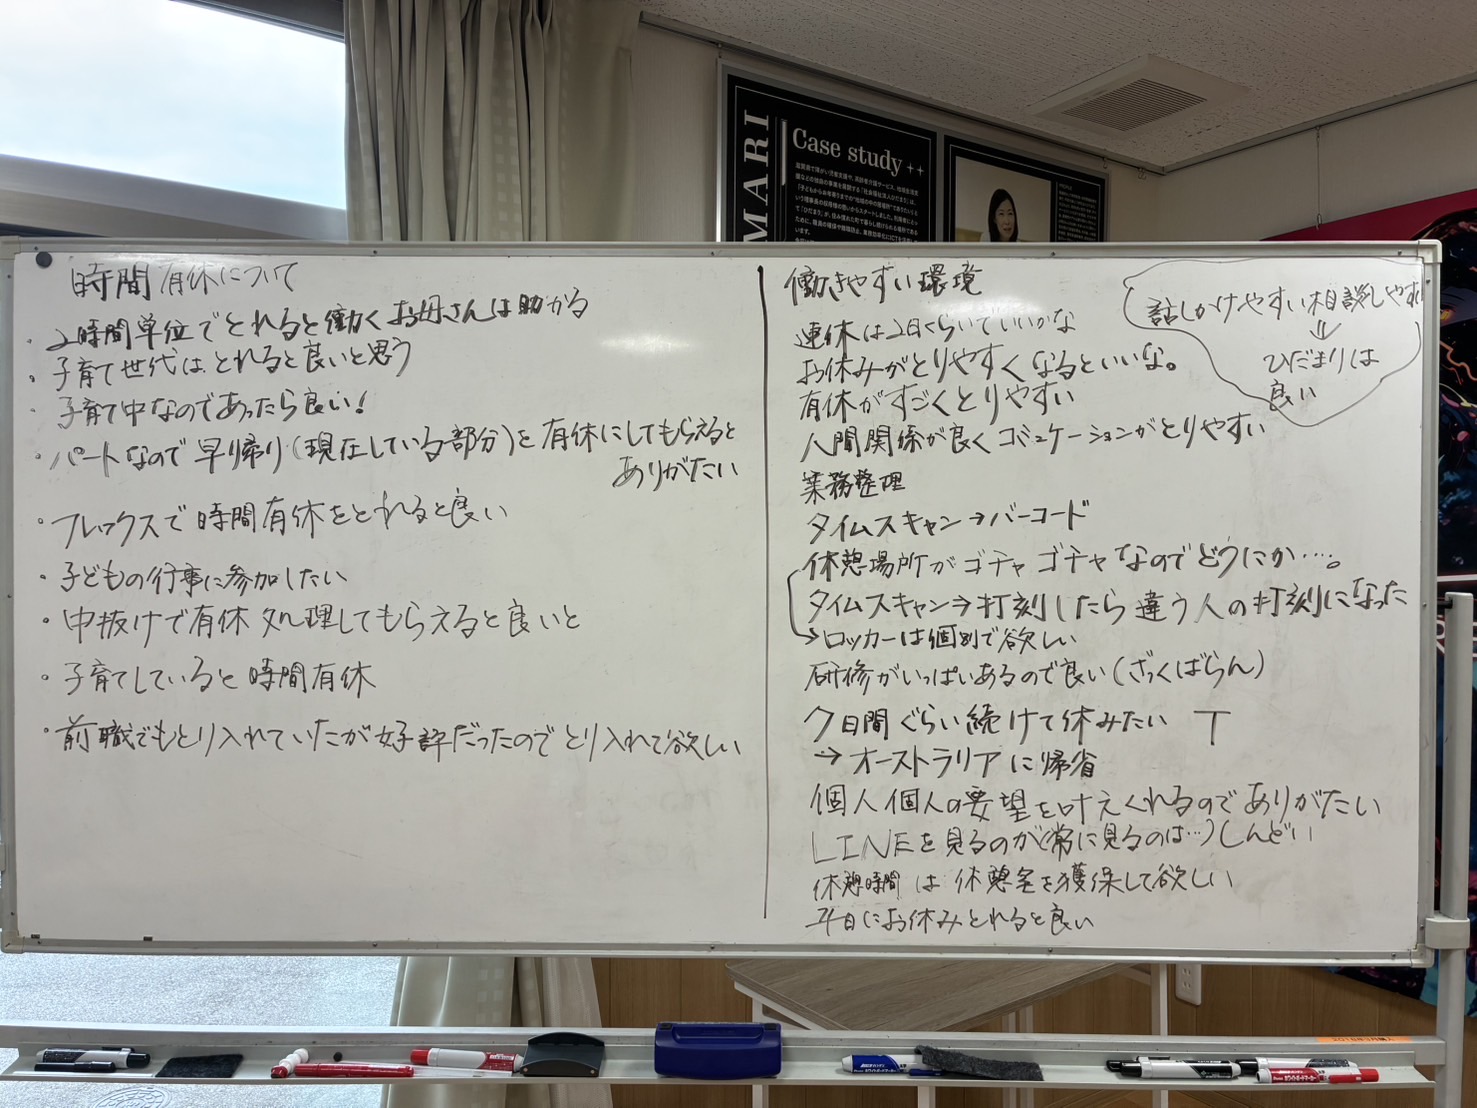 MARI
Case study
時間有休について
・2時間単位でとれると働くお母さんは助かる
・子育て世代はとれると良いと思う
・子育て中なのであったら良い!
・パートなので早り帰り(現在している部分)を有休にしてもらえると
ありがたい
・フレックスで時間有休をとれると良い
・子どもの行事に参加したい
・中抜けで有休処理してもらえると良いと
・子育てしていると時間有休
・前職でもとり入れていたが好評だったのでとり入れて欲しい
働きやすい環境
連休は2日くらいでいいかな
お休みがとりやすくなるといいな。
有休がすごくとりやすい
人間関係が良くコミュケーションがとりやすい
業務整理
タイムスキャン→バーコード
休憩場所がゴチャゴチャなのでどうにか‥‥。
タイムスキャン⇒打刻したら違う人の打刻になった
→ロッカーは個別で欲しい
研修がいっぱいあるので良い(ざっくばらん)
7日間ぐらい続けて休みたい T
→オーストラリアに帰省
個人個人の要望を叶えくれるのでありがたい
LINEを見るのが(常に見るのは…)しんどい
休憩時間は休憩室を獲保して欲しい
平日にお休みとれると良い
話しかけやすい相談しやす
⇓
ひだまりは
良い